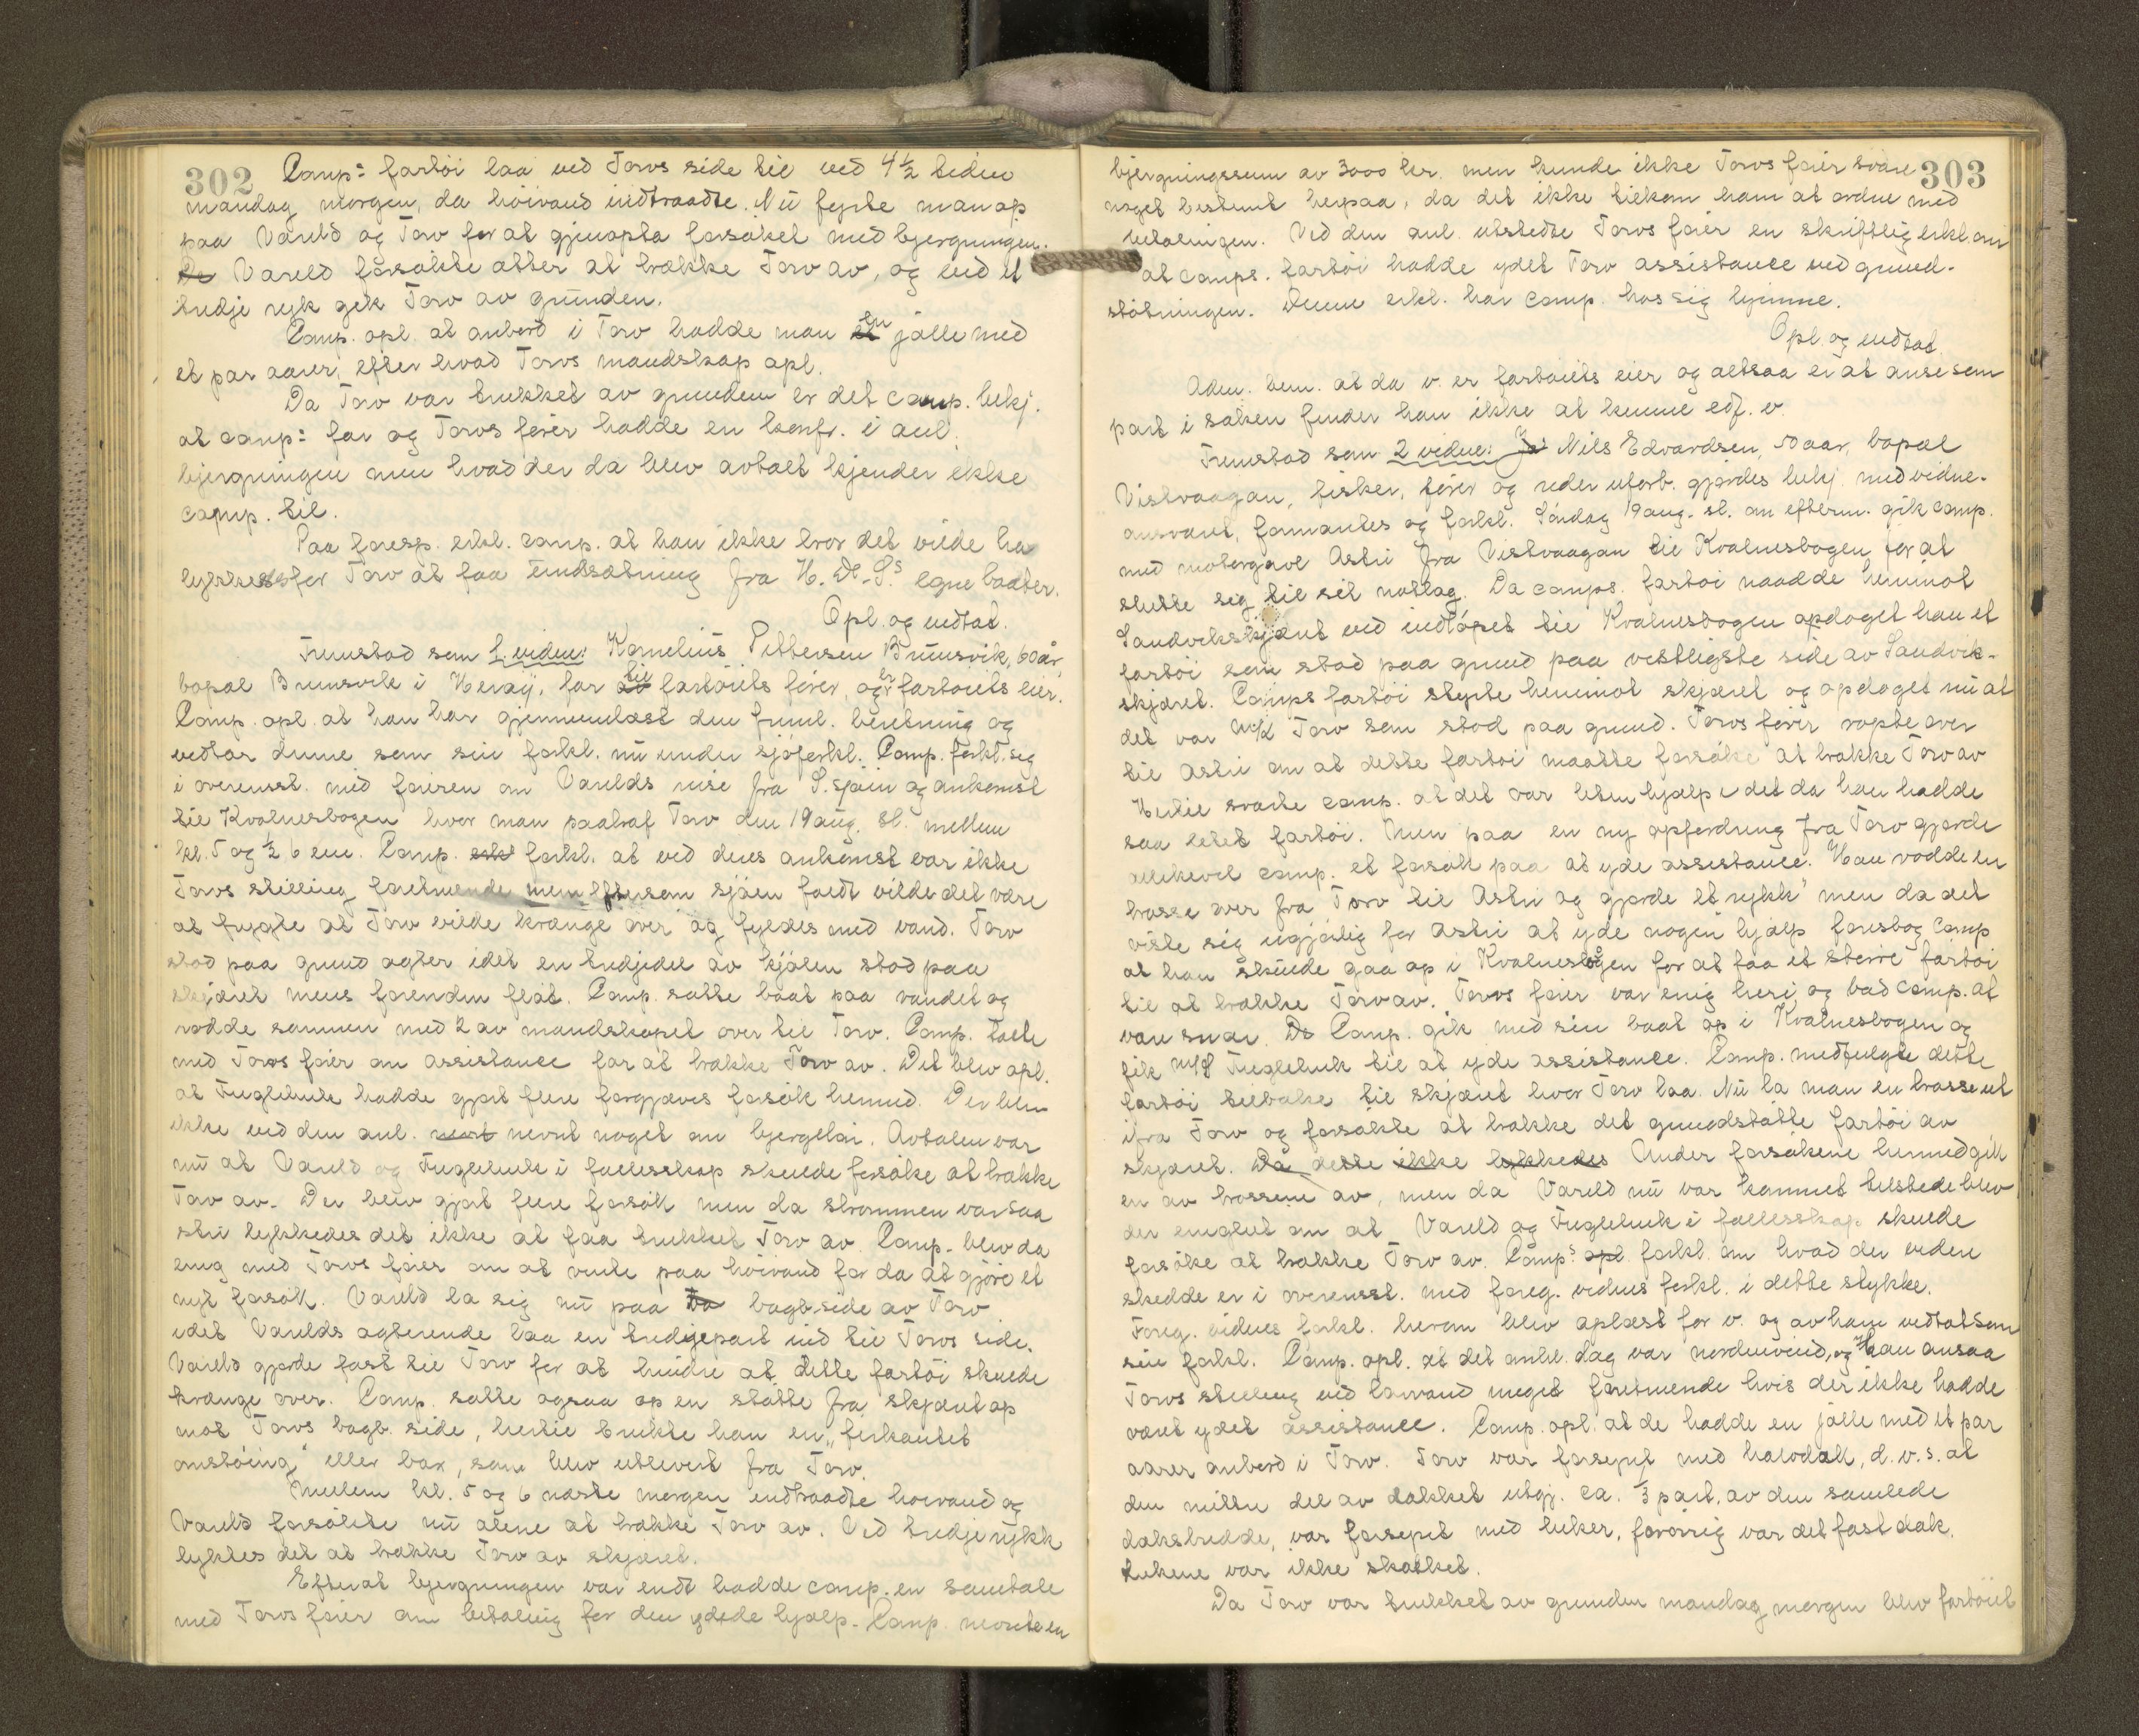 302
Comp: fartøi laa ved Torvs side til ved 4½ tiden
mandag morgen, da høivand indtraadte. Nu fyrte man op
paa Vareld og Torv for at gjenopta forsøket med bjergningen.
De Vareld forsøkte atter at trække Torv av, og ved et
tredje ryk gik Torv av grunden.
Comp. opl. at anbord i Torv hadde man et en jolle med
et par aarer, efter hvad Torvs mandskap opl.
Da Torv var trukket av grunden er det comp. bekj.
at comp: far og Torvs fører hadde en konfr. i anl.
bjergningen men hvad der da blev avtalt kjender ikke
comp. til.
Paa foresp. erkl. comp. at han ikke tror det vilde ha
lykkedes for Torv at faa undsætning fra H. D. S.s egne baater.
Opl. og vedtat.
Fremstod som 1. vidne: Kornelius Pettersen Brunsvik, 60 år
bopæl Brunsvik i Herøy, far av til fartøiets fører, og er fartøiets eier.
Comp. opl. at han har gjennemlæst den freml. beretning og
vedtar denne som sin forkl. nu under sjøforkl. Comp. forkl. seg
i overensst. med føreren om Varelds reise fra S.sjøin og ankomst
til Kvalnesbogen hvor man paatraf Torv den 19 aug. sl. mellem
kl. 5 og ½ 6 em. Comp. erkl forkl. at ved deres ankomst var ikke
Torvs stilling faretruende men eftersom sjøen faldt vilde det være
at frygte at Torv vilde krænge over og fyldes med vand. Torv
stod paa grund agter idet en tredjedel av kjølen stod paa
skjæret mens forenden fløt. Comp. satte baat paa vandet og
rodde sammen med 2 av mandskapet over til Torv. Comp. talte
med Torvs fører om assistance for at trække Torv av. Det blev opl.
at Fuglebuk hadde gjort flere forgjæves forsøk hermed. Der blev
ikke ved den anl. nevt nevnt noget om bjergeløn. Avtalen var
nu at Vareld og Fuglebuk i fællesskap skulde forsøke at trække
Torv av. Der blev gjort flere forsøk men da strømmen var saa
stri lykkedes det ikke at faa trukket Torv av. Comp. blev da
enig med Torvs fører om at vente paa høivand for da at gjøre et
nyt forsøk. Vareld la sig nu paa To bagb. side av Torv
idet Varelds agterende laa en tredjepart ind til Torvs side.
Vareld gjorde fast til Torv for at hindre at dette fartøi skulde
krænge over. Comp. satte ogsaa op en støtte fra skjæret op
mot Torvs bagb. side, hertil brukte han en "firkantet
omstøing" eller bom, som blev utlevert fra Torv.
Mellem kl. 5 og 6 næste morgen indtraadte høivand og
Vareld forsøkte nu alene at trække Torv av. Ved tredje rykk
lyktes det at trække Torv av skjæret.
Efterat bjergningen var endt hadde comp. en samtale
med Torvs fører om betaling for den ydede hjælp. Comp. nevnte en
303
bjergningssum av 3000 kr. men kunde ikke Torvs fører svare
noget bestemt herpaa, da det ikke tilkom ham at ordne med
betalingen. Ved den anl. utstedte Torvs fører en skriftlig erkl. om
at comps. fartøi hadde ydet Torv assistance ved grund-
støtningen. Denne erkl. har comp. hos sig hjemme.
Opl. og vedtat.
Adm. bem. at da v. er fartøiets eier og altsaa er at anse som
part i saken finder han ikke at kunne edf. v.
Fremstod som 2 vidne: Jo Nils Edvardsen, 50 aar, bopæl
Vistvaagan, fisker, fører og reder uforb. gjordes bekj. med vidne-
ansvaret, formantes og forkl. Søndag 19 aug. sl. om efterm. gik comp.
med motorgavl Astri fra Vistvaagan til Kvalnesbogen for at
slutte sig til sit notlag. Da comps. fartøi naadde henimot
Sandvikskjæret ved indløpet til Kvalnesbogen opdaget han et
fartøi som stod paa grund paa vestligste side av Sandvik-
skjæret. Comps fartøi styrte henimot skjæret og opdaget nu at
det var M/K Torv som stod paa grund. Torvs fører ropte over
til Astri om at dette fartøi maatte forsøke at trække Torv av
Hertil svarte comp. at det var liten hjælp i det da han hadde
saa litet fartøi. Men paa en ny opfordring fra Torv gjorde
allikevel comp. et forsøk paa at yde assistance. Han rodde en
trosse over fra Torv til Astri og gjorde et "rykk" men da det
viste sig ugjørlig for Astri at yde nogen hjælp foreslog comp
at han skulde gaa op i Kvalnesbogen for at faa et større fartøi
til at trække Torv av. Torvs fører var enig heri og bad comp. at
være snar. Da Comp. gik med sin baat op i Kvalnesbogen og
fik M/K Fuglebuk til at yde assistance. Comp. medfulgte dette
fartøi tilbake til skjæret hvor Torv laa. Nu la man en trosse ut
ifra Torv og forsøkte at trække det grundstøtte fartøi av
skjæret. Da dette ikke lykkedes Under forsøkene hermed gik
en av trossene av, men da Vareld nu var kommet tilstede blev
der enighet om at Vareld og Fuglebuk i fællesskap skulde
forsøke at trække Torv av. Comps opl forkl. om hvad der videre
skedde er i overensst. med foreg. vidnes forkl. i dette stykke.
Foreg. vidnes forkl. herom blev oplæst for v. og av ham vedtat som
sin forkl. Comp. opl. at det omhl. dag var nordenvind, og Han ansaa
Torvs stilling ved lavvand meget faretruende hvis der ikke hadde
været ydet assistance. Comp. opl. at de hadde en jolle med et par
aarer anbord i Torv. Torv var forsynt med halvdæk, d. v. s. at
den mittre del av dækket utgj. ca. ⅓ part av den samlede
dæksbredde, var forsynt med luker, forøvrig var det fast dæk.
Lukene var ikke skalket.
Da Torv var trukket av grunden mandag morgen blev fartøiet